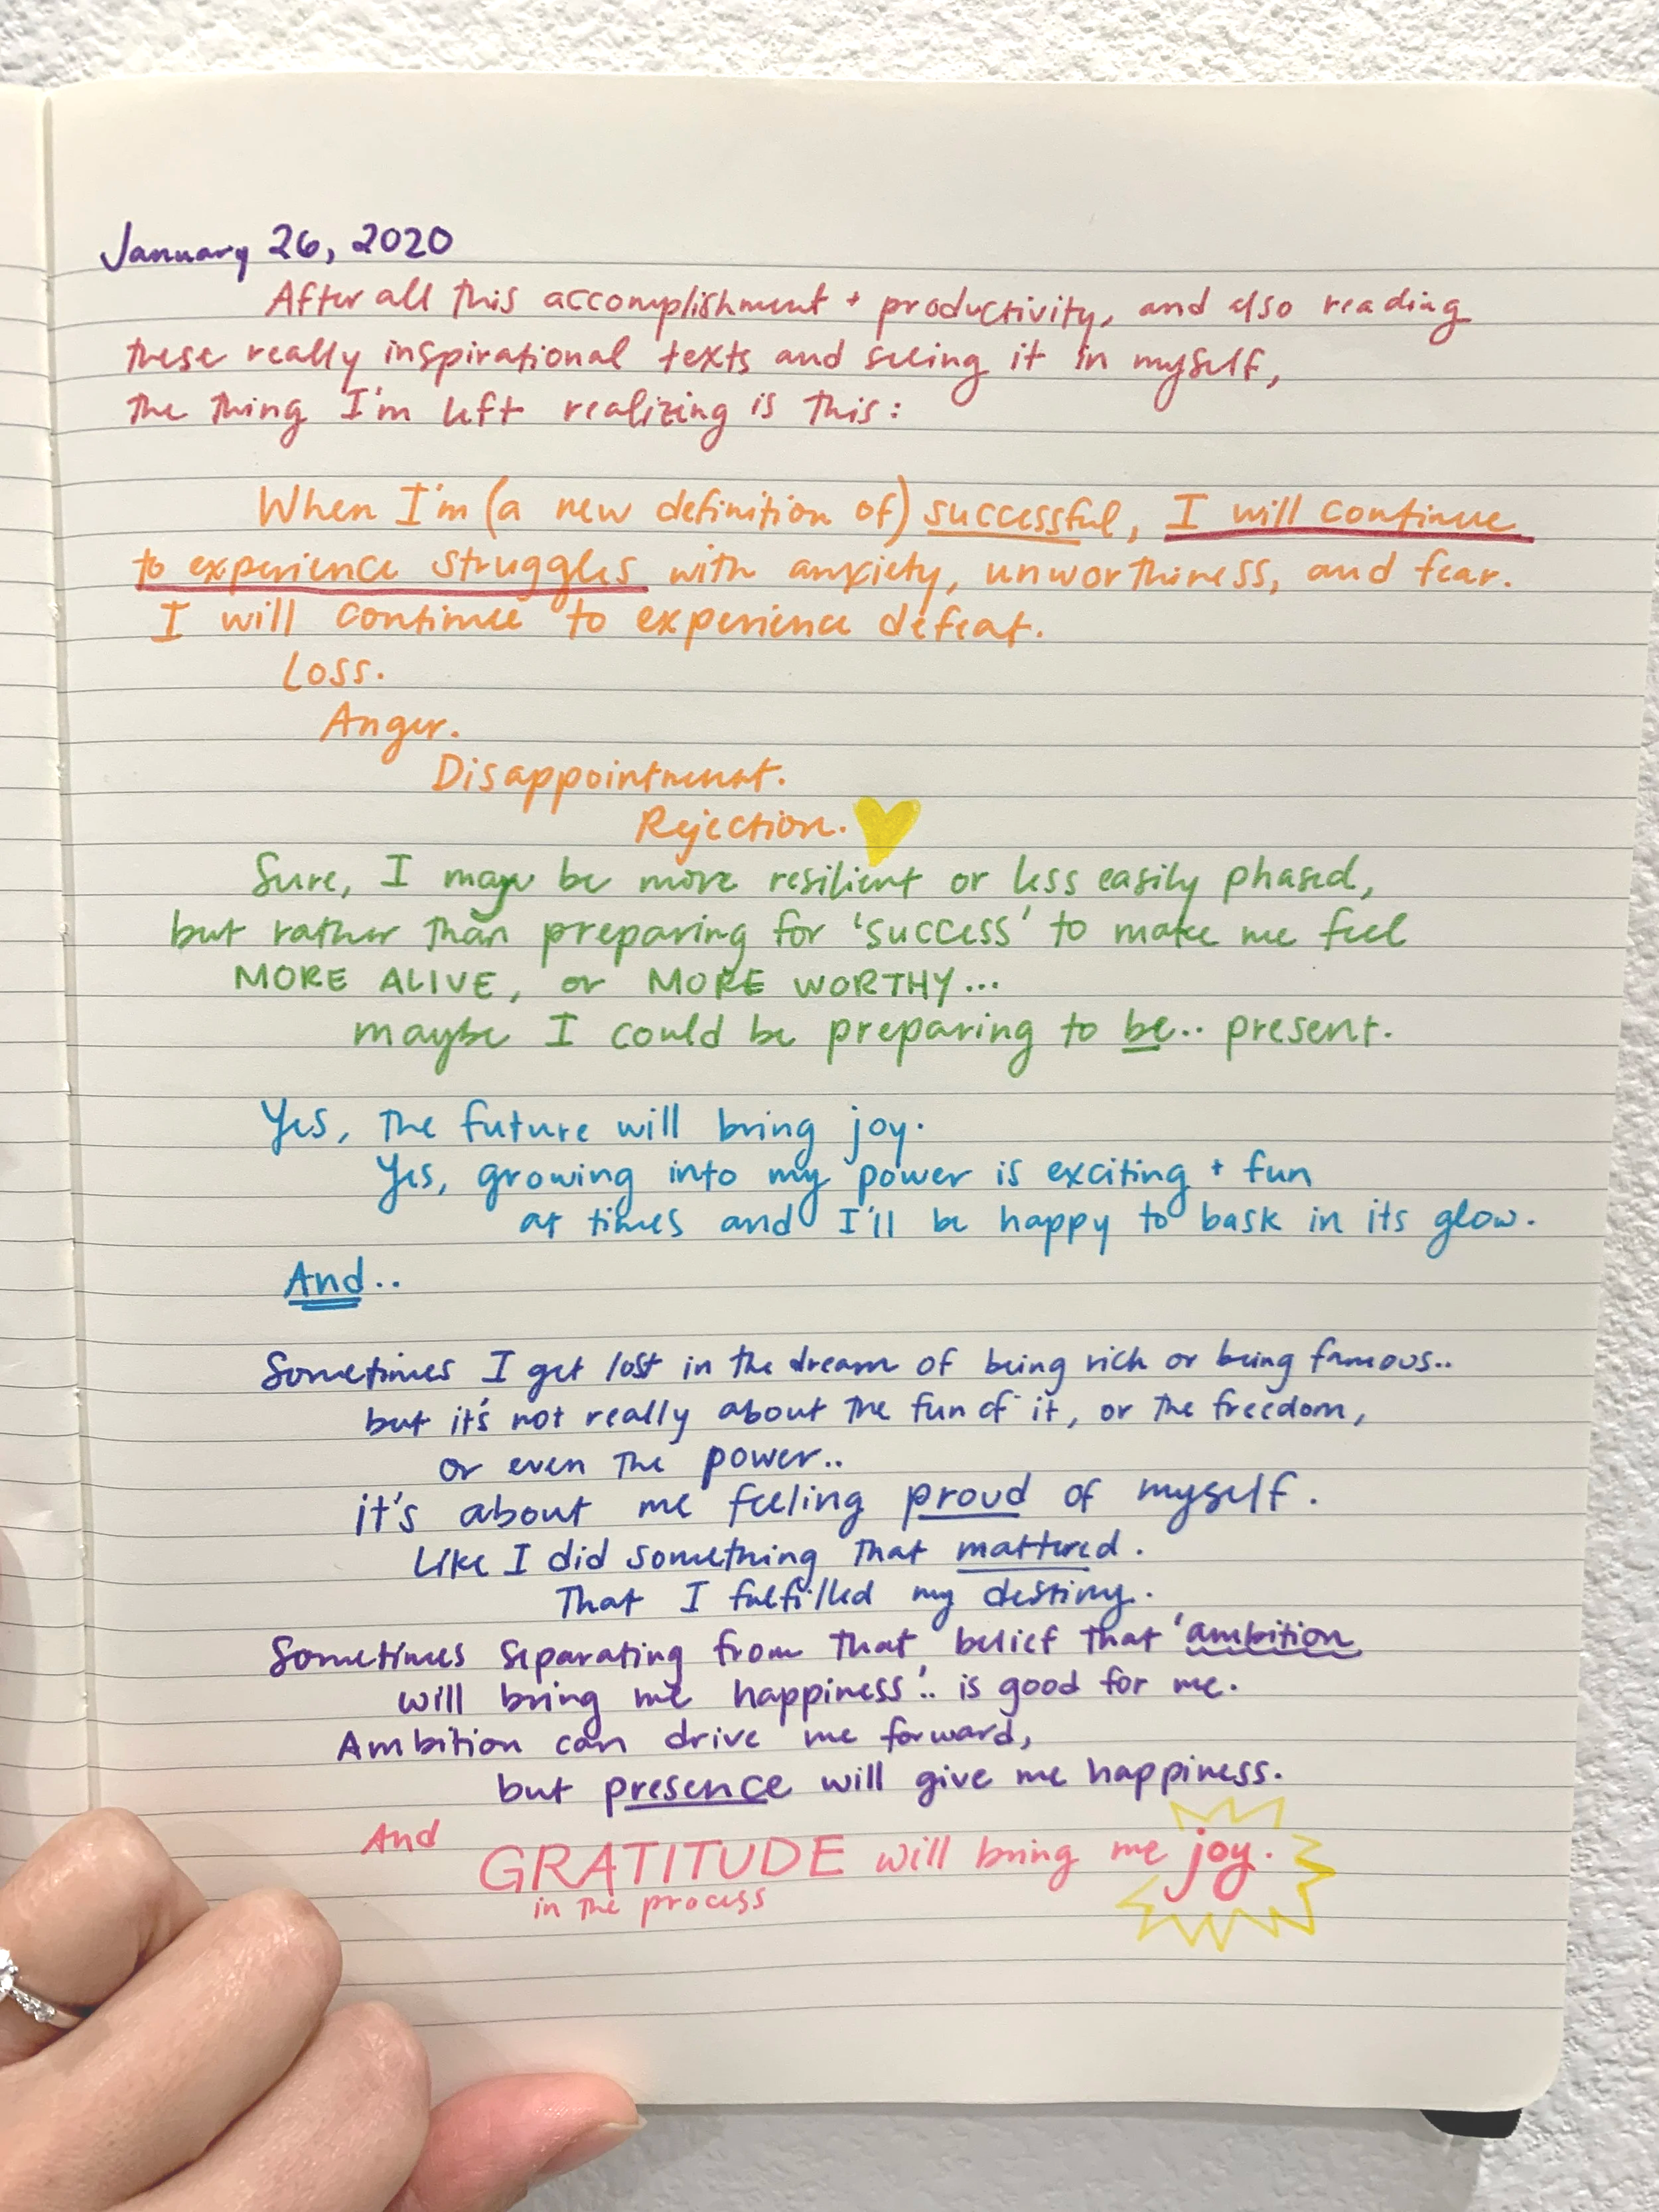 January 26, 2020
After all this accomplishment + productivity, and also reading
these really inspirational texts and seeing it in myself,
the thing I'm left realizing is this:
When I'm (a new definition of) successful, I will continue
to experience struggles with anxiety, unworthiness, and fear.
I will continue to experience defeat.
Loss.
Anger.
Disappointment.
Rejection.
Sure, I may be more resilient or less easily phased,
but rather than preparing for 'success' to make me feel
MORE ALIVE, or MORE WORTHY...
maybe I could be preparing to be.. present.
Yes, the future will bring joy.
Yes, growing into my power is exciting + fun
at times and I'll be happy to bask in its glow.
And..
Sometimes I get lost in the dream of being rich or being famous..
but it's not really about the fun of it, or the freedom,
or even the power..
it's about me feeling proud of myself.
Like I did something that mattered.
That I fulfilled my destiny.
Sometimes separating from that belief that 'ambition
will bring me happiness'.. is good for me.
Ambition can drive me forward,
but presence will give me happiness.
And GRATITUDE will bring me joy.
in the process